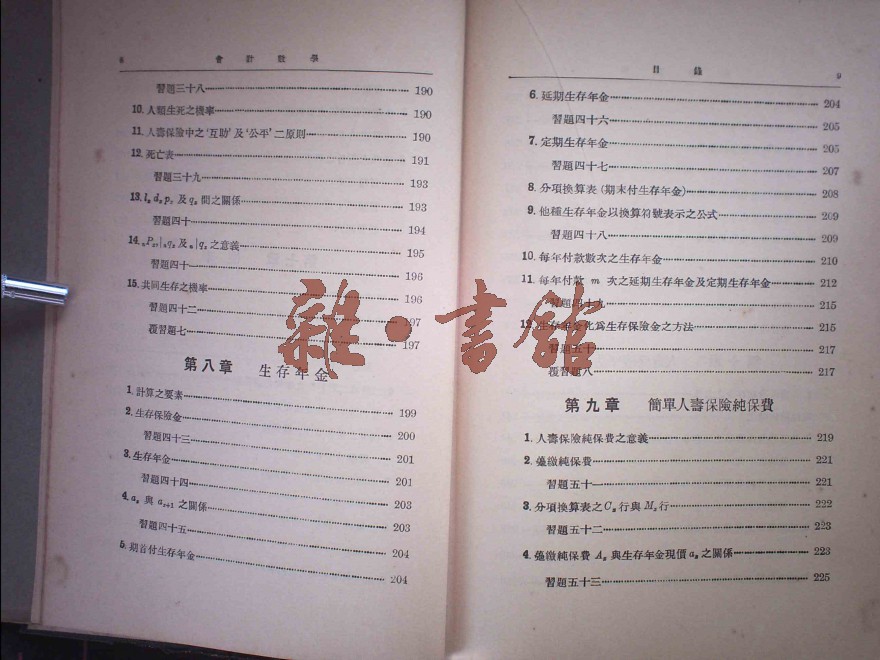 8 會計數學
習題三十八 190
10. 人類生死之機率 190
11. 人壽保險中之‘互助’及‘公平’二原則 190
12. 死亡表 191
習題三十九 193
13. lₓ dₓ pₓ 及 qₓ 間之關係 193
習題四十 194
14. ₙPₓ, |ₙqₓ 及 ₙ|qₓ 之意義 195
習題四十一 196
15. 共同生存之機率 196
習題四十二 197
覆習題七 197
第八章 生存年金
1. 計算之要素 199
2. 生存保險金 200
習題四十三 201
3. 生存年金 201
習題四十四 203
4. aₓ 與 aₓ₊₁ 之關係 203
習題四十五 204
5. 期首付生存年金 204
目錄 9
6. 延期生存年金 204
習題四十六 205
7. 定期生存年金 205
習題四十七 207
8. 分項換算表(期末付生存年金) 208
9. 他種生存年金以換算符號表示之公式 209
習題四十八 209
10. 每年付款數次之生存年金 210
11. 每年付款 m 次之延期生存年金及定期生存年金 212
習題四十九 215
12. 生存年金化爲生存保險金之方法 215
習題五十 217
覆習題八 217
第九章 簡單人壽保險純保費
1. 人壽保險純保費之意義 219
2. 躉繳純保費 221
習題五十一 221
3. 分項換算表之 Cₓ 行與 Mₓ 行 222
習題五十二 223
4. 躉繳純保費 Aₓ 與生存年金現價 aₓ 之關係 223
習題五十三 225
雜·書館